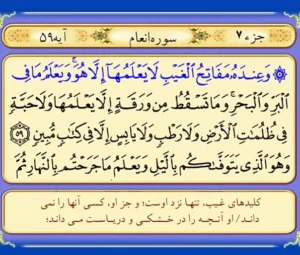 جزء ۷ سوره انعام آیه ۵۹
وَعِندَهُ مَفَاتِحُ الْغَيْبِ لَا يَعْلَمُهَا إِلَّا هُوَ وَيَعْلَمُ مَا فِي
الْبَرِّ وَالْبَحْرِ وَمَا تَسْقُطُ مِن وَرَقَةٍ إِلَّا يَعْلَمُهَا وَلَا حَبَّةٍ
فِي ظُلُمَاتِ الْأَرْضِ وَلَا رَطْبٍ وَلَا يَابِسٍ إِلَّا فِي كِتَابٍ مُّبِينٍ ۵۹
وَهُوَ الَّذِي يَتَوَفَّاكُم بِاللَّيْلِ وَيَعْلَمُ مَا جَرَحْتُم بِالنَّهَارِ ثُمَّ
کلیدهای غیب، تنها نزد اوست؛ و جز او، کسی آنها را نمی
داند/ او آنچه را در خشکی و دریاست می داند؛